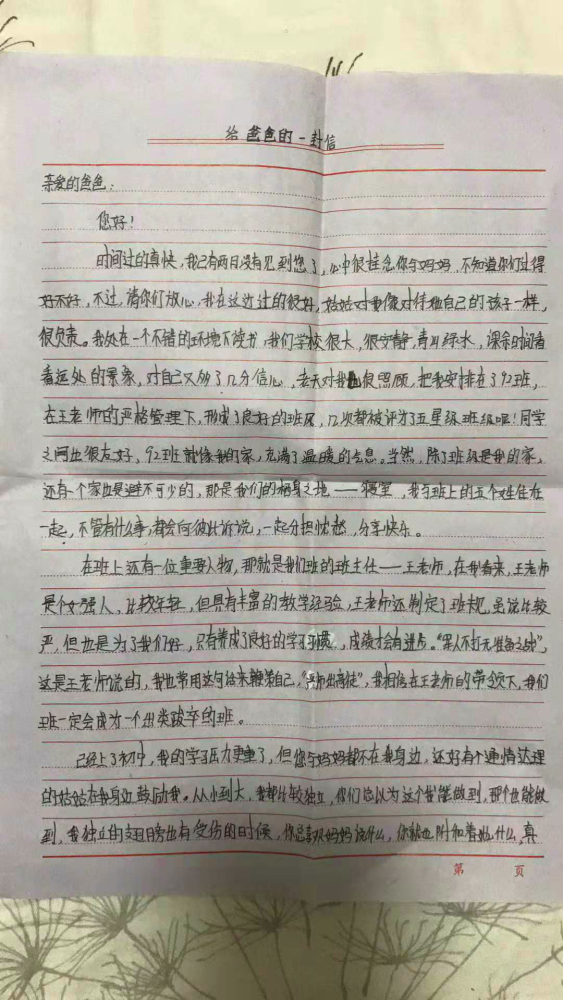 给爸爸的一封信
亲爱的爸爸:
您好!
时间过的真快,我已有两月没有见到您了,心中很挂念你与妈妈,不知道你们过得
好不好,不过,请你们放心,我在这边过的很好,姑姑对我像对待她自己的孩子一样,
很负责。我处在一个不错的环境下读书,我们学校很大,很安静,青山绿水,课余时间看
看远处的景象,对自己又多了几分信心,老天对我也很照顾,把我安排在了92班,
在王老师的严格管理下,形成了良好的班风,几次都被评为五星级班级呢!同学
之间也很友好,92班就像我的家,充满了温暖的气息。当然,除了班级是我的家,
还有一个家也是避不可少的,那是我们的栖身之地——寝室,我与班上的五个女生住在
一起,不管有什么事,都会向彼此诉说,一起分担忧愁,分享快乐。
在班上还有一位重要人物,那就是我们班的班主任——王老师,在我看来,王老师
是个女强人,比较年轻,但具有丰富的教学经验,王老师还制定了班规,虽说比较
严,但也是为了我们好,只有养成了良好的学习习惯,成绩才会有进步。“军人不打无准备之战”,
这是王老师说的,我也常用这句话来鞭策自己,“严师出高徒”,我相信在王老师的带领下,我们
班一定会成为一个出类拔卒的班。
已经上了初中,我的学习压力更重了,但您与妈妈都不在我身边,还好有个通情达理
的姑姑在我身边鼓励我。从小到大,我都比较独立,你们总以为这个我能做到,那个也能做
到,我独立的翅膀也有受伤的时候,你总喜欢妈妈说什么,你就也附和着她什么,真
第 页